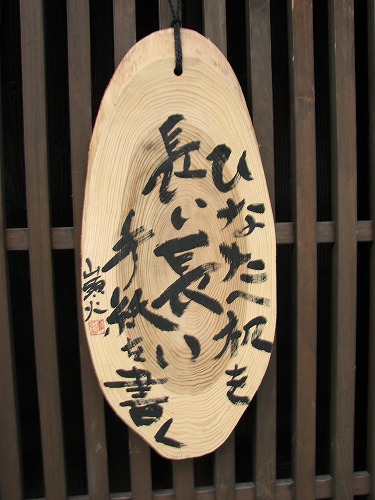 ひなたへ机を
長い長い
手紙を書く
山頭火